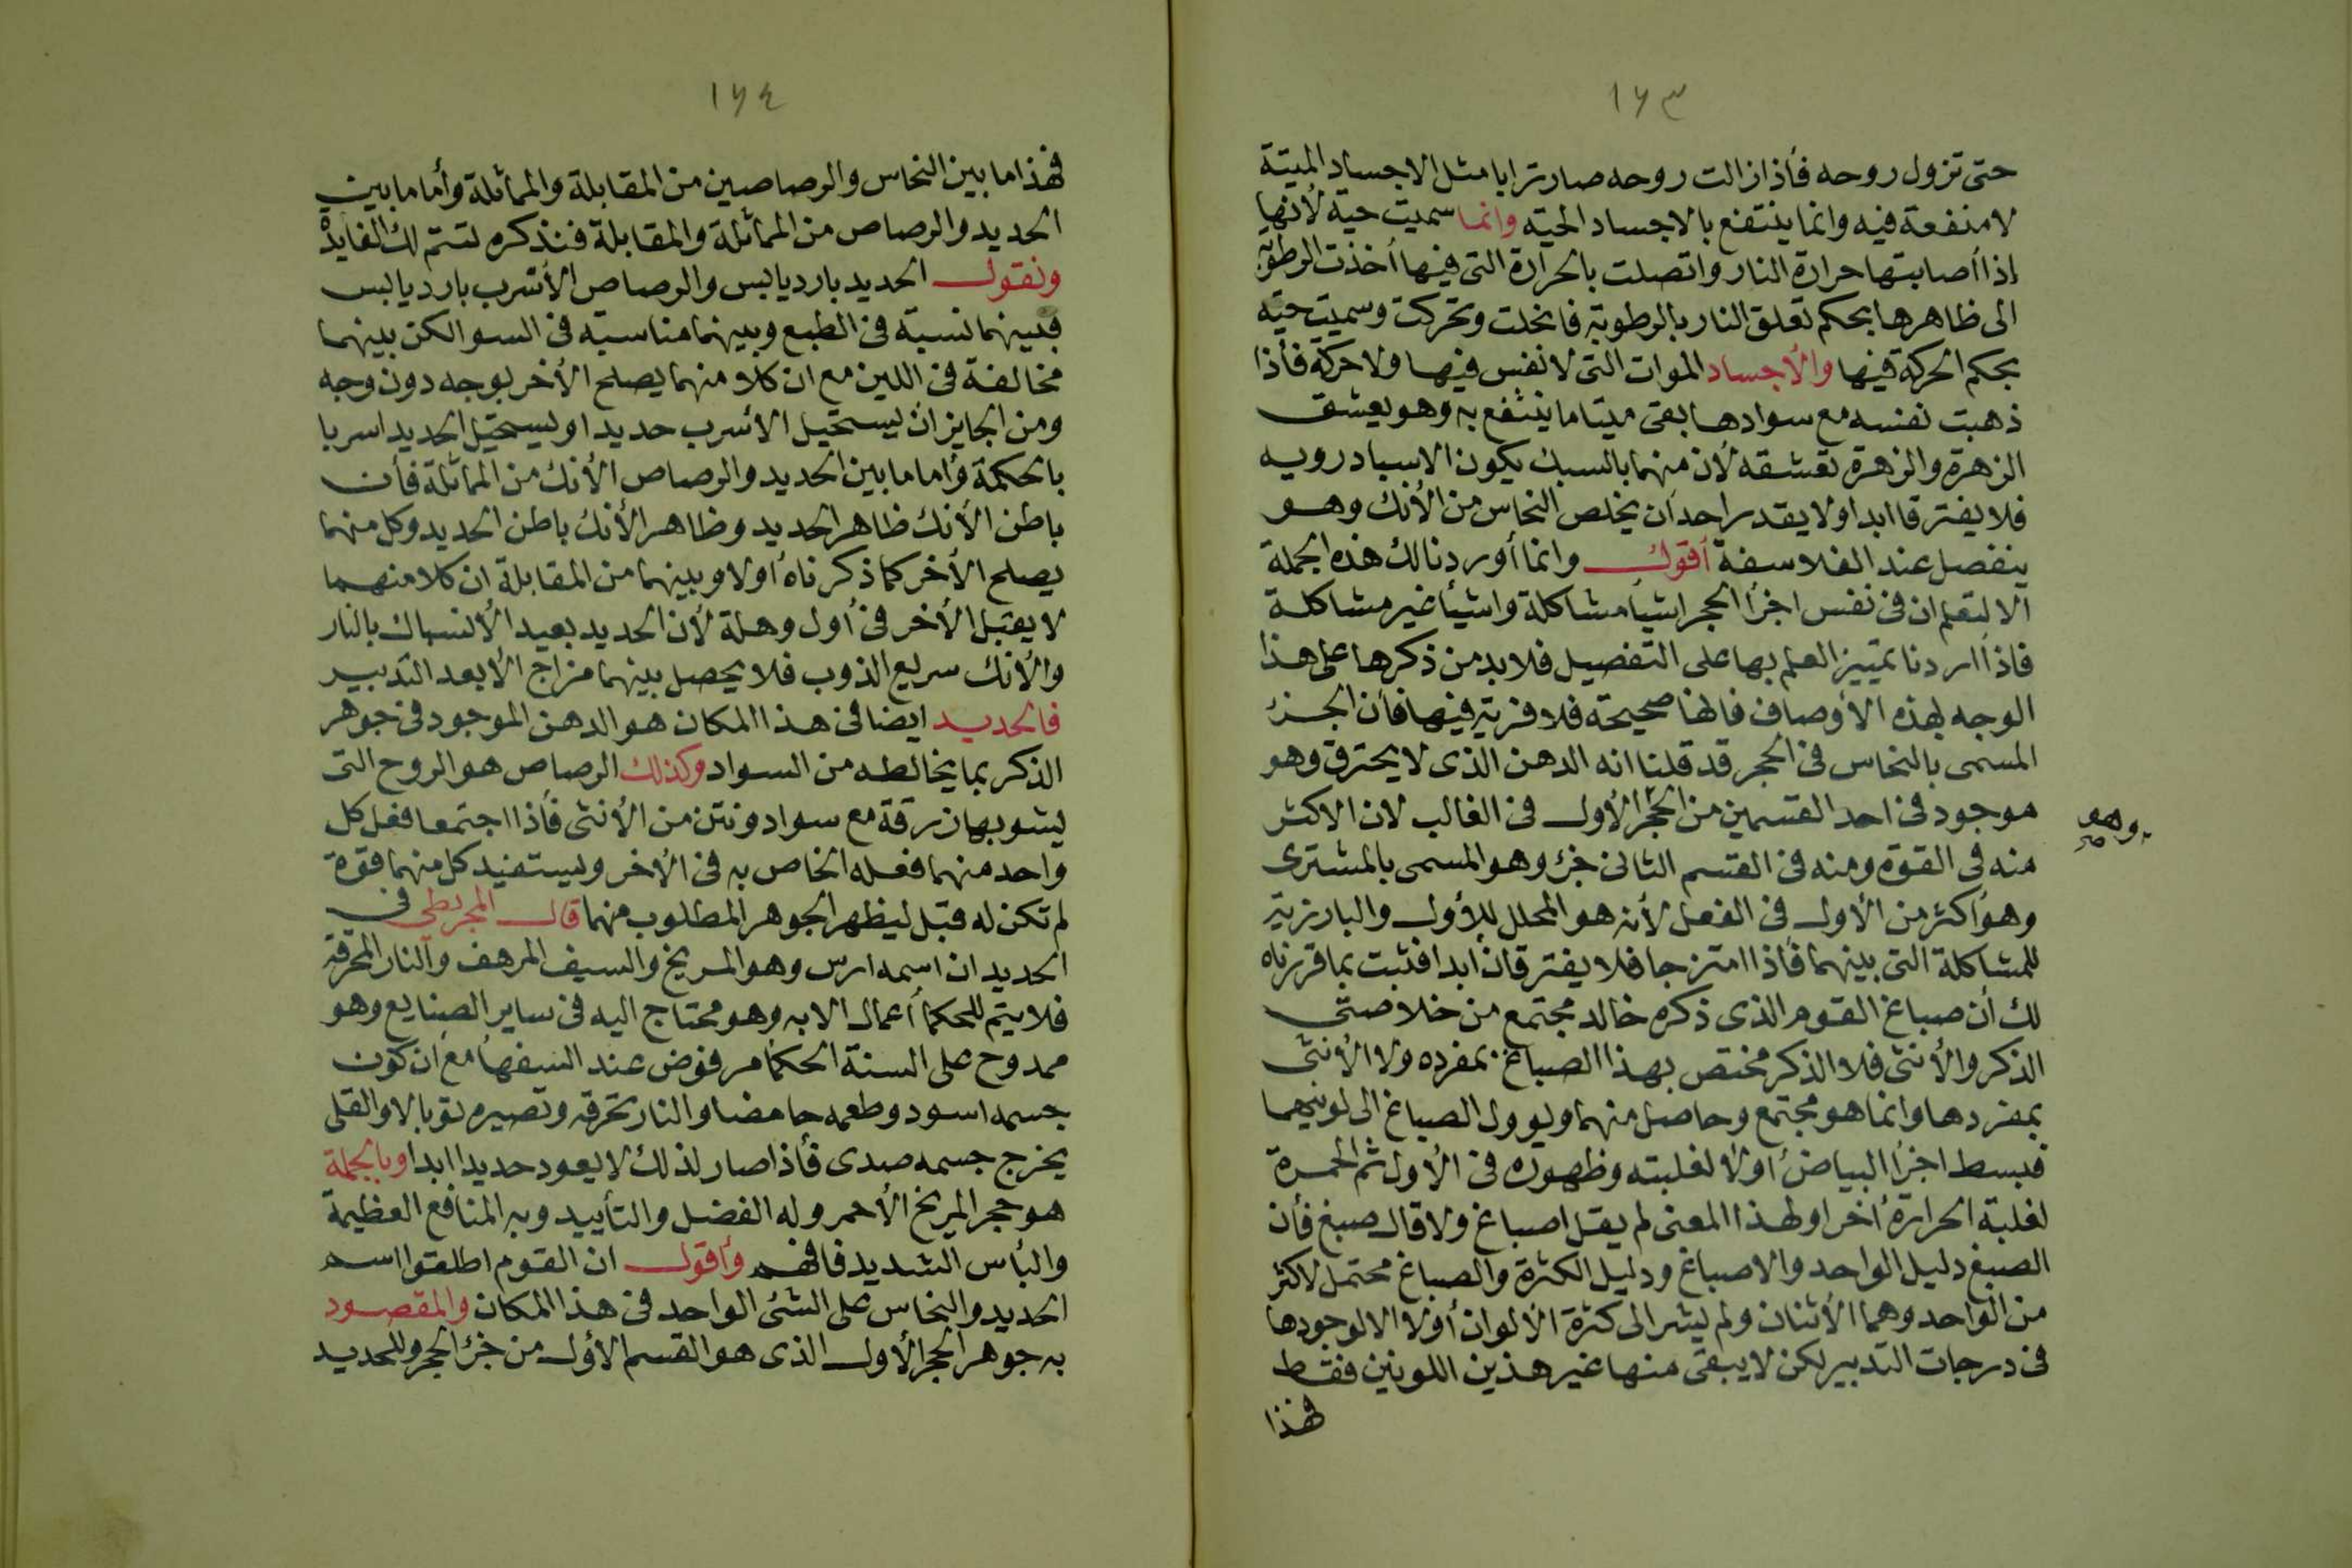 ١٦٣
حتى تزول روحه فأذا زالت روحه صار ترابا مثل الاجساد الميتة
لا منفعة فيه وانما ينتفع بالاجساد الحية وانما سميت حية لأنها
إذا أصابتها حرارة النار واتصلت بالحرارة التى فيها أخذت الرطوبة
الى ظاهرها بحكم تعلق النار بالرطوبة فانحلت وتحركت وسميت حية
بحكم الحركة فيها والأجساد الموات التى لا نفس فيها ولا حركة فأذا
ذهبت نفسه مع سوادها بقى ميتا ما ينتفع به وهو يعشق
الزهرة والزهرة تعشقه لأن منهما بالسبك يكون الاسبادرويه
فلا يفترقا ابدا ولا يقدر احد ان يخلص النحاس من الأنك وهو
ينفصل عند الفلاسفة أقول وانما أوردنا لك هذه الجملة
الا لتعلم ان فى نفس اجزأ الحجر اشيأ مشاكلة واشيأ غير مشاكلة
فاذا اردنا تمييز العلم بها على التفصيل فلا بد من ذكرها على هذا
الوجه بهذه الأوصاف فانها صحيحة فلا فرية فيها فأن الجزء
المسمى بالنحاس فى الحجر قد قلنا انه الدهن الذى لا يحترق وهو
موجود فى احد القسمين من الحجر الأول فى الغالب لان الاكثر
وهو صح
منه فى القوة ومنه فى القسم الثانى جزء وهو المسمى بالمشترى
وهو أكثر من الأول فى الفعل لأنه هو المحلل للأول والبارزية
للمشاكلة التى بينهما فأذا امتزجا فلا يفترقان ابدا فثبت بما قررناه
لك أن صباغ القوم الذى ذكره خالد مجتمع من خلاصتى
الذكر والأنثى فلا الذكر مختص بهذا الصباغ بمفرده ولا الأنثى
بمفردها وانما هو مجتمع وحاصل منهما ويوول الصباغ الى لونيهما
فبسط اجزأ البياض اولا لغلبته وظهوره فى الأول ثم الحمرة
لغلبة الحرارة أخرا ولهذا المعنى لم يقل اصباغ ولا قال صبغ فأن
الصبغ دليل الواحد والاصباغ ودليل الكثرة والصباغ محتمل لاكثر
من الواحد وهما الأثنان ولم يشر الى كثرة الألوان أولا الا لوجودها
فى درجات التدبير لكن لا يبقى منها غير هذين اللونين فقط
فهذا
١٦٤
فهذا ما بين النحاس والرصاصين من المقابلة والمماثلة وأما ما بين
الحديد والرصاص من المماثلة والمقابلة فنذكره لتتم لك الفايدة
ونقول الحديد بارد يابس والرصاص الأسرب بارد يابس
فبينهما نسبة فى الطبع وبينهما مناسبة فى السوا لكن بينهما
مخالفة فى اللين مع ان كلا منهما يصلح الأخر بوجه دون وجه
ومن الجايز ان يستحيل الأسرب حديدا او يستحيل الحديد اسربا
بالحكمة وأما ما بين الحديد والرصاص الأنك من المماثلة فأن
باطن الأنك ظاهر الحديد وظاهر الأنك باطن الحديد وكل منهما
يصلح الأخر كما ذكرناه أولا وبينهما من المقابلة ان كلا منهما
لا يقبل الأخر فى أول وهلة لأن الحديد بعيد الأنسباك بالنار
والأنك سريع الذوب فلا يحصل بينهما مزاج الأ بعد التدبير
فالحديد ايضا فى هذا المكان هو الدهن الموجود فى جوهر
الذكر بما يخالطه من السواد وكذلك الرصاص هو الروح التى
يشوبها زرقة مع سواد ونتن من الأنثى فأذا اجتمعا فعل كل
واحد منهما فعله الخاص به فى الأخر ويستفيد كل منهما قوة
لم تكن له قبل ليظهر الجوهر المطلوب منهما قال المجريطى فى
الحديد ان اسمه ارس وهو المريخ والسيف المرهف والنار المحرقة
فلا يتم للحكما أعمال الا به وهو محتاج اليه فى ساير الصنايع وهو
ممدوح على السنة الحكما مرفوض عند السفهأ مع ان كون
جسمه اسود وطعمه حامضا والنار تحرقه وتصيره توبالا والقلى
يخرج جسمه صدى فأذا صار لذلك لا يعود حديدا ابدا وبالجملة
هو حجر المريخ الأحمر وله الفضل والتأييد وبه المنافع العظيمة
والبأس الشديد فافهم وأقول ان القوم اطلقوا اسم
الحديد والنحاس على الشئ الواحد فى هذا المكان والمقصود
به جوهر الحجر الأول الذى هو القسم الأول من جزئ الحجر وللحديد